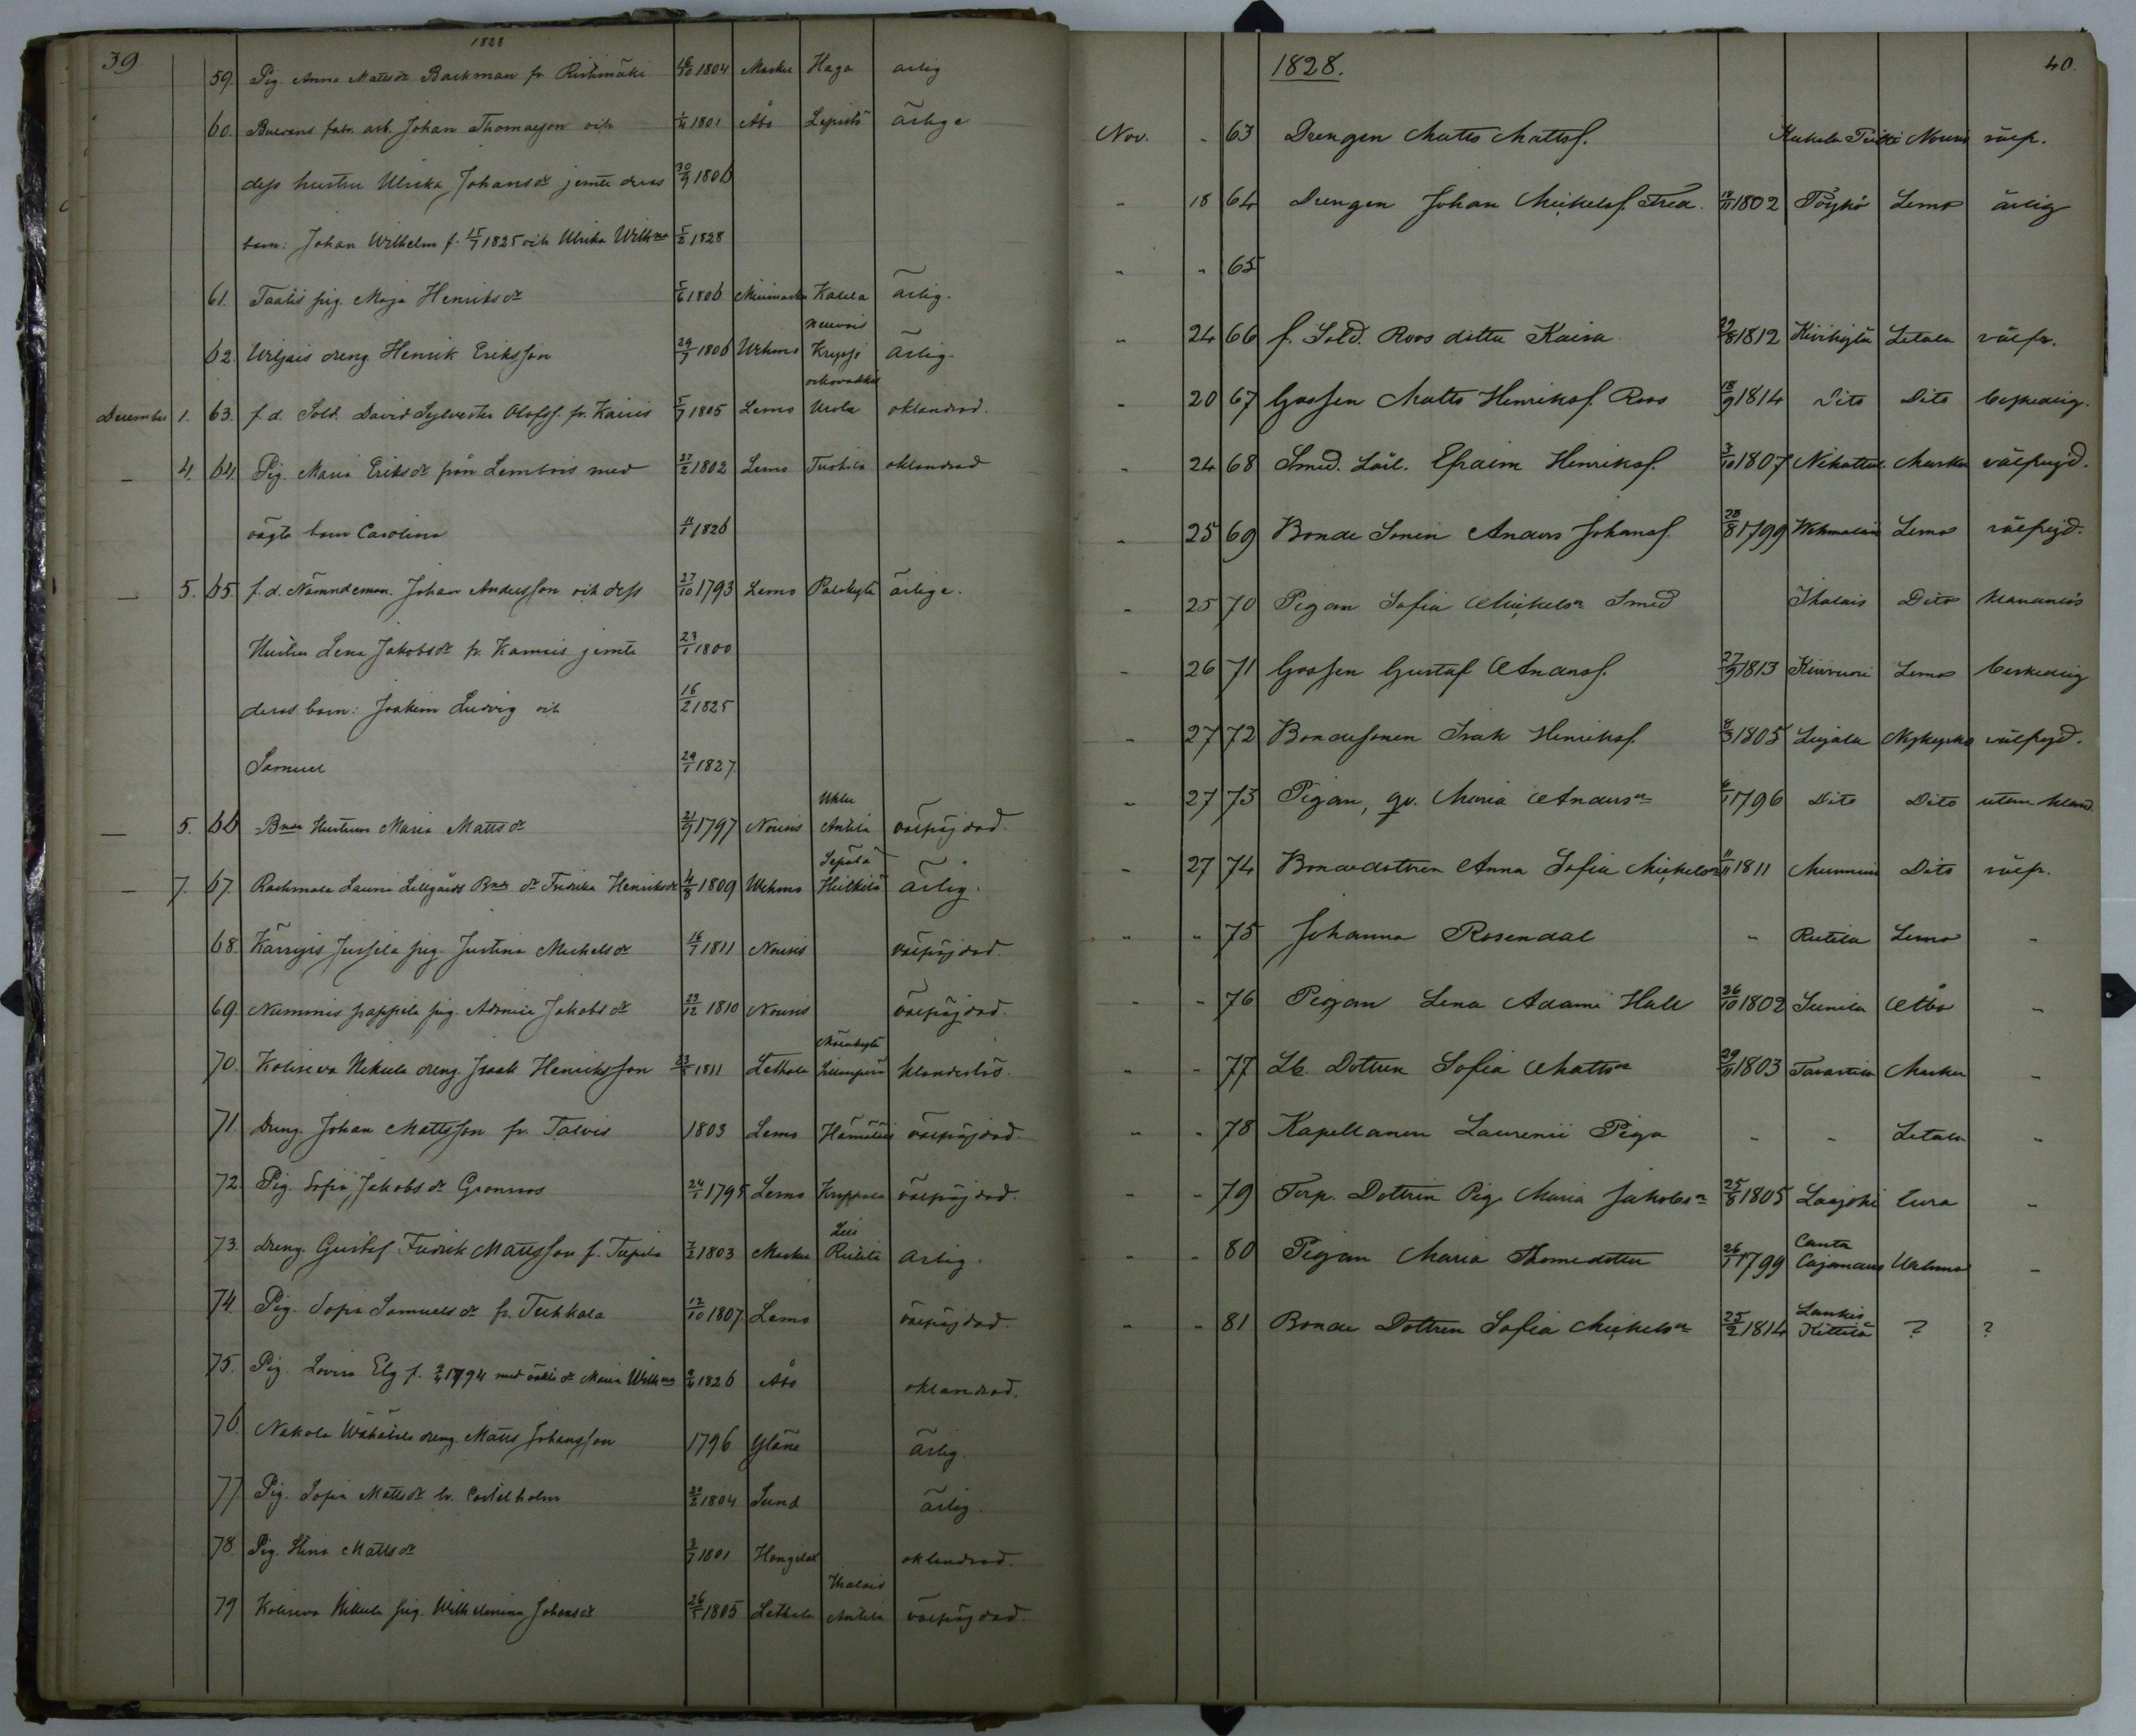 39.
1828
59. Pig. Anna Mattsdr Backman fr. Ristimäki 16/10 1804 Masku Haga ärlig
60. fabr. arb. Johan Thomasson och 1801 Åbo Lepistö ärlige
dess hustru Ulrika Johansdr jemte deras 30/9 1806
barn: Johan Wilhelm f. 15/7 1825 och Ulrika Willhna 5/2 1828
61. Taatis pig. Maja Henriksdr 5/6 1806 Katela ärlig.
Neuvois
62. Uljais dreng Henrik Eriksson 29/9 1806 Wehmo Kryssi ärlig.
December 1. 63. f.d. Sold. David Sylvester Olofss. fr. Kairis 5/7 1805 Lemo oklandrad.
— 4. 64. Pig. Maria Eriksdr från Lembois med 27/2 1802 Lemo Tuokila oklandrad
oägta barn Carolina 1826
— 5. 65. f.d. Nämndeman. Johan Andersson och dess 27/10 1793 Lemo Palokylä ärlige.
Hustru Lena Jakobsdr fr. Kannis jemte 23/1 1800
deras barn: Joakim Ludvig och 16/2 1825
Samuel 29/1 1827.
— 5. 66 Bnes Hustrun Maria Mattsdr 21/9 1797 Nousis Antila välfrejdad.
Sepälä
— 7. 67. Rachmala Lauri Lillgårds Bnes dr Fredrika Henriksdr 4/8 1809 Wehmo Heikkilä ärlig.
68. Kärryis Jussila pig. Justina Mickelsdr 16/7 1811 Nousis välfrejdad.
69. Nummis pappila pig. Jakobsdr 23/12 1810 Nousis välfrejdad.
70. Kolseva Nikula dreng. Isaak Henricksson 1811 Lethala klanderlös.
71. Dreng. Johan Mattsson fr. Talvis 1803 Lemo välfrejdad.
72. Pig. Sofia Jakobsdr Gronroos 24/1 1795 Lemo Kruppala välfrejdad.
73. Dreng. Gustaf Fredrik Mattsson f. Tupila 7/2 1803 Masku ärlig.
74. Pig. Sofia Samuelsdr fr. Tuhkala 12/10 1807 Lemo välfrejdad.
75. Pig. Lovisa Elg f. 1794 med oäkta dr Maria Willhna 1826 Åbo oklandrad.
76. Nakola dreng. Matts Johansson 1796 Yläne ärlig.
77. Pig. Sofia Mattsdr fr. Castelholm 20/2 1804 Sund ärlig.
78. Pig. Stina Mattsdr 3/7 1801 oklandrad.
Ihalais
79 Kolseva Nikula pig. Wilhelmina Johansdr 26/5 1805 Letala Antila välfrejdad.
1828.
40.
Nov. - 63 Drengen Matts Mattss. Nousis välfr.
- 18 64 Drengen Johan Mickelss. Fred. 18/11 1802 Pöykö Lemo ärlig
- - 65
- 24 66 f. Sold. Roos dotter Kaisa 29/8 1812 Kivikylä Letala välfr.
- 20 67 Gossen Matts Henrikss. Roos 18/9 1814 Dito Dito beskedlig.
- 24 68 Smed. Lärl. Efraim Henrikss. 3/10 1807 Nihattula Masku välfrejd.
- 25 69 Bonde Sonen Anders Johanss. 28/8 1799 Lemo välfrejd.
- 25 70 Pigan Sofia Mickelsdr Smed Ihalais Dito klanderlös
- 26 71 Gossen Gustaf Anderss. 27/9 1813 Kiivuori Lemo beskedlig
- 27 72 Bondesonen Isak Henrikss. 8/3 1805 Leijala Nykyrko välfrejd.
- 27 73 Pigan, qv. Maria Andersdr 1796 Dito Dito utan kland.
- 27 74 Bondedottren Anna Sofia Mickelsdr 11/11 1811 Munnuis Dito välfr.
- - 75 Johanna Rosendal - Rutila Lemo -
- - 76 Pigan Lena Adami Hall 26/10 1802 Sunila Åbo -
- - 77 Lb. Dottren Sofia Mattsdr 29/11 1803 Tavastila Masku -
- - 78 Kapellanen Laurenii Piga - - Letala -
- - 79 Torp. Dottren Pig. Maria Jakobsdr 25/8 1805 Laajoki Eura -
Canta
- - 80 Pigan Maria Thomedotter 26/1 1799 Cajanaus Wehmo -
Lankis
- - 81 Bonde Dottren Sofia Mickelsdr 25/2 1814 Kittilä ? ?